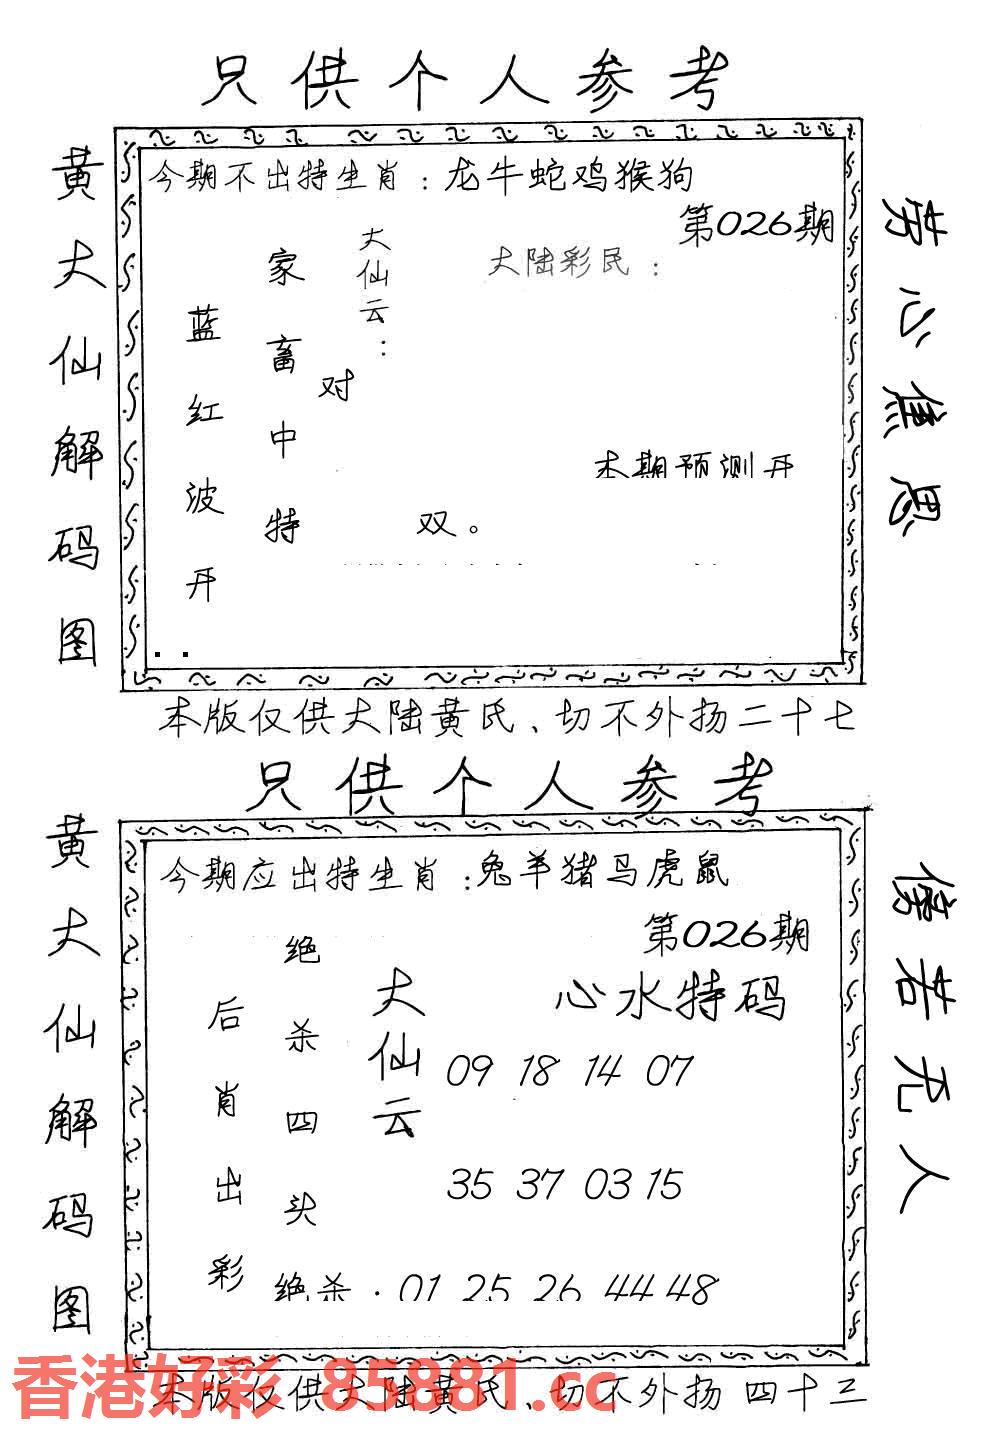 只供个人参考
黄大仙解码图
今期不出特生肖：龙牛蛇鸡猴狗
第026期
大陆彩民：
大仙云：
家畜中特
蓝红波开
对
双。
本期预测开
劳心焦思
本版仅供大陆黄氏、切不外扬二十七
只供个人参考
黄大仙解码图
今期应出特生肖：兔羊猪马虎鼠
第026期
心水特码
大仙云
绝杀四头
后肖出彩
09 18 14 07
35 37 03 15
绝杀：01 25 26 44 48
傍若无人
香港好彩 85881.cc
本版仅供大陆黄氏、切不外扬 四十三